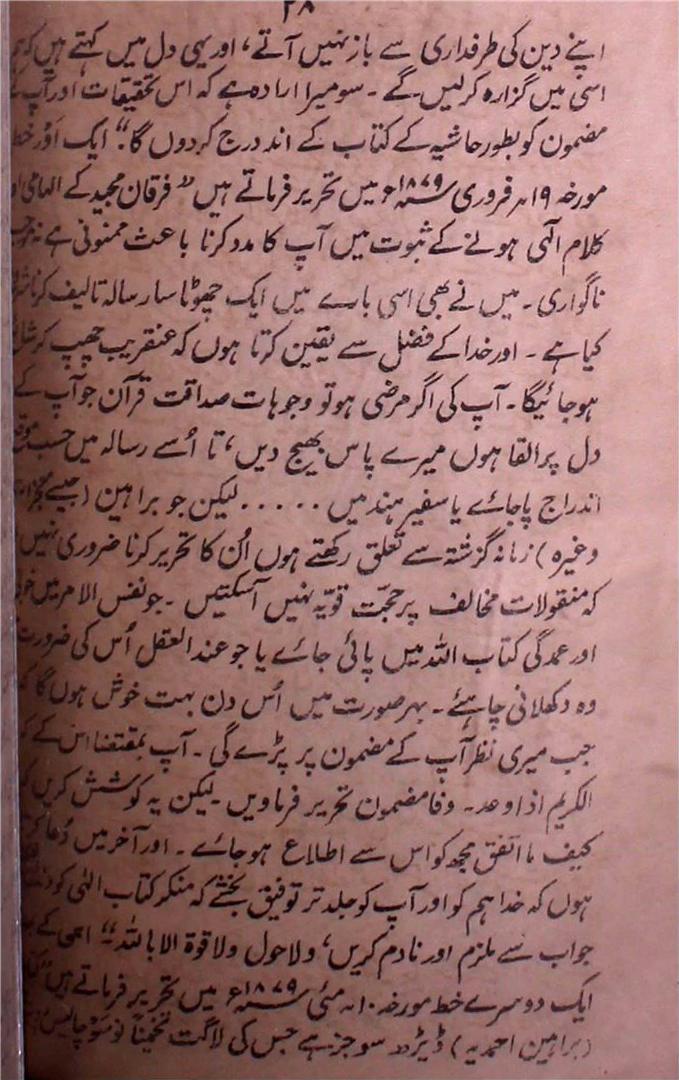 ۳۸
اپنے دین کی طرفداری سے باز نہیں آتے، اور یہی دل میں کہتے ہیں کہ ہم
اسی میں گزارہ کرلیں گے۔ سو میرا ارادہ ہے کہ اس تحقیقات اور آپ کے
مضمون کو بطور حاشیہ کے کتاب کے اندر درج کردوں گا۔“ ایک اَور خط
مورخہ ۱۹ر فروری ۱۸۷۹ء میں تحریر فرماتے ہیں ”فرقان مجید کے الہامی
کلام الٰہی ہونے کے ثبوت میں آپ کا مدد کرنا باعث ممنونی ہے نہ موجب
ناگواری۔ میں نے بھی اسی بارے میں ایک چھوٹا سا رسالہ تالیف کرنا
کیا ہے۔ اور خدا کے فضل سے یقین کرتا ہوں کہ عنقریب چھپ کر
ہو جائیگا۔ آپ کی اگر مرضی ہو تو وجوہات صداقت قرآن جو آپ کے
دل پر القا ہوں میرے پاس بھیج دیں، تا اُسے رسالہ میں حسب
اندراج پا جائے یا سفیر ہند میں ..... لیکن جو براہین (جیسے
وغیرہ) زمانہ گزشتہ سے تعلق رکھتے ہوں اُن کا تحریر کرنا ضروری نہیں
کہ منقولات مخالف پر حجّت قویّہ نہیں آسکتیں۔ جو نفس الامر میں
اور عمدگی کتاب اللہ میں پائی جائے یا جو عند العقل اُس کی ضرورت
وہ دکھلانی چاہئے۔ بہر صورت میں اُس دن بہت خوش ہوں گا کہ
جب میری نظر آپ کے مضمون پر پڑے گی۔ آپ بمقتضا اس کے کہ
الکریم اذا وعد۔ وفا مضمون تحریر فرماویں۔ لیکن یہ کوشش کریں کہ
کیف ما اتفق مجھ کو اس سے اطلاع ہو جائے۔ اور آخر میں دُعا
ہوں کہ خدا ہم کو اور آپ کو جلد تر توفیق بخشے کہ منکر کتاب الٰہی کو
جواب سے ملزم اور نادم کریں، ولا حول ولا قوۃ الا باللہ۔“ اسی کے
ایک دوسرے خط مورخہ ۱۰ر مئی ۱۸۷۹ء میں تحریر فرماتے ہیں
(براہین احمدیہ) ڈیڑھ سو جز ہے جس کی لاگت تخمیناً نو سو چالیس